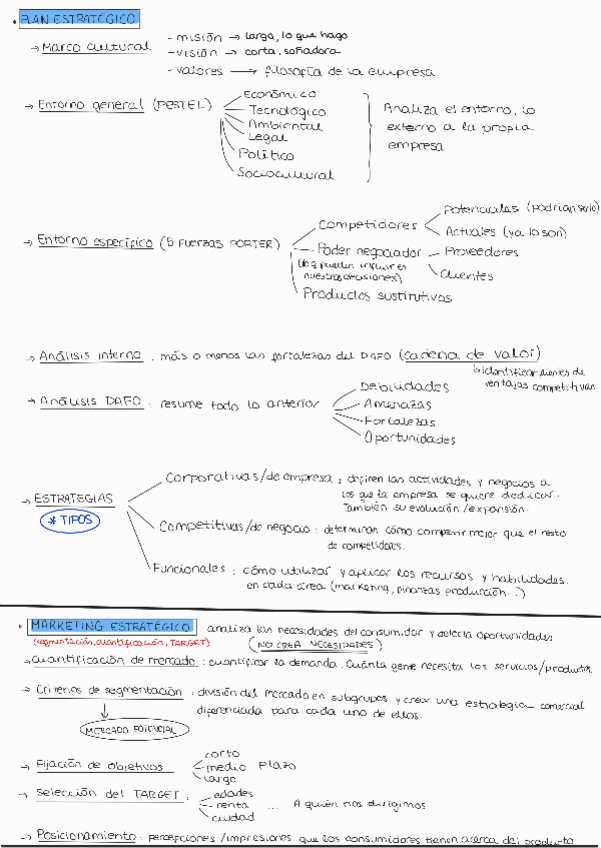 • PLAN ESTRATÉGICO
→ Marco cultural
- misión → larga, lo que hago
- visión → corta, soñadora
- valores → filosofía de la empresa
→ Entorno general (PESTEL)
Económico
Tecnológico
Ambiental
Legal
Político
Sociocultural
Analiza el entorno, lo
externo a la propia
empresa
→ Entorno específico (5 FUERZAS PORTER)
Competidores
Potenciales (podrían serlo)
Actuales (ya lo son)
Poder negociador
(lo q pueden influir en
nuestras decisiones)
Proveedores
Clientes
Productos sustitutivos
→ Análisis interno : más o menos las fortalezas del DAFO (cadena de valor)
↳ identificar fuentes de
ventajas competitivas
→ Análisis DAFO : resume todo lo anterior
Debilidades
Amenazas
Fortalezas
Oportunidades
→ ESTRATEGIAS
* TIPOS
Corporativas/de empresa : definen las actividades y negocios a
los que la empresa se quiere dedicar.
También su evolución/expansión.
Competitivas/de negocio : determinan cómo competir mejor que el resto
de competidores.
Funcionales : cómo utilizar y aplicar los recursos y habilidades
en cada área (marketing, finanzas, producción...)
• MARKETING ESTRATÉGICO analiza las necesidades del consumidor y detecta oportunidades
(segmentación, cuantificación, TARGET) (NO CREA NECESIDADES)
→ Cuantificación de mercado : cuantificar la demanda. Cuánta gente necesita los servicios/productos.
→ Criterios de segmentación : división del mercado en subgrupos y crear una estrategia comercial
diferenciada para cada uno de ellos.
MERCADO POTENCIAL
→ Fijación de objetivos
corto
medio plazo
largo
→ Selección del TARGET :
edades
renta ... A quién nos dirigimos
ciudad
→ Posicionamiento : percepciones/impresiones que los consumidores tienen acerca del producto